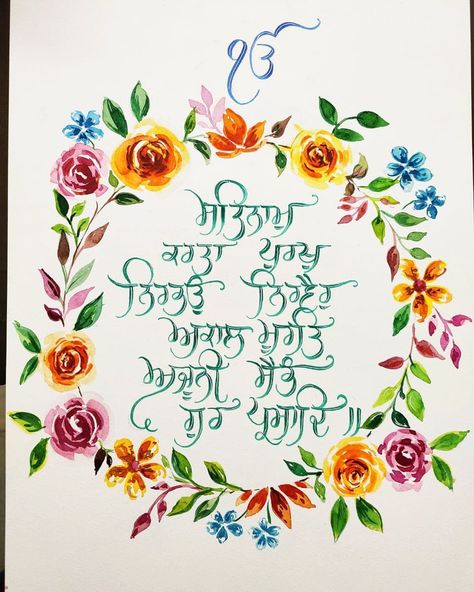 ੴ
ਸਤਿਨਾਮੁ
ਕਰਤਾ ਪੁਰਖੁ
ਨਿਰਭਉ ਨਿਰਵੈਰੁ
ਅਕਾਲ ਮੂਰਤਿ
ਅਜੂਨੀ ਸੈਭੰ
ਗੁਰ ਪ੍ਰਸਾਦਿ ॥